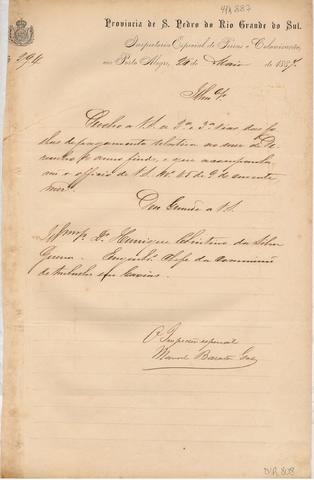 A14.887
Provincia de S. Pedro do Rio Grande do Sul.
Inspectoria Especial de Terras e Colonisação,
em Porto Alegre, 26 de Maio de 1887.
Illmo. Sr.
Devolvo a V.S. a 2ª e 3ª vias das fo-
lhas de pagamento relativas ao mez de
do anno findo, e que acompanha-
ram o officio de V.S. Nº 65 de 9 do corrente
mez.
Deus Guarde a V.S.
Illmo. Sr. Dr. Henrique Christino da Silva
Engenhº Chefe da Commissão
de trabalhos em Caxias.
O Inspector especial
Manoel
DVR 808